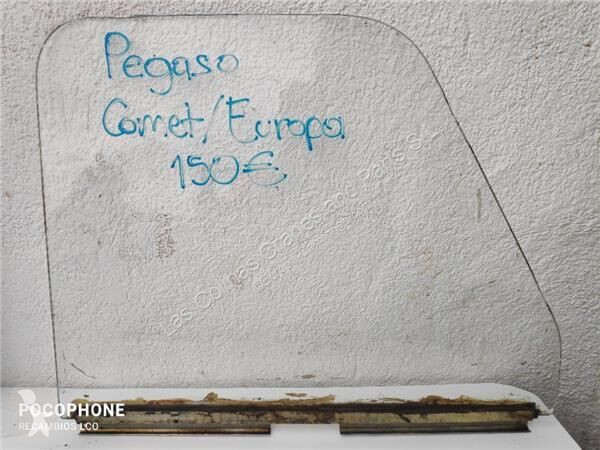 Pegaso
Comet/Europa
150€
Las Comas Cranes and Parts S.L.
POCOPHONE
RECAMBIOS LCO